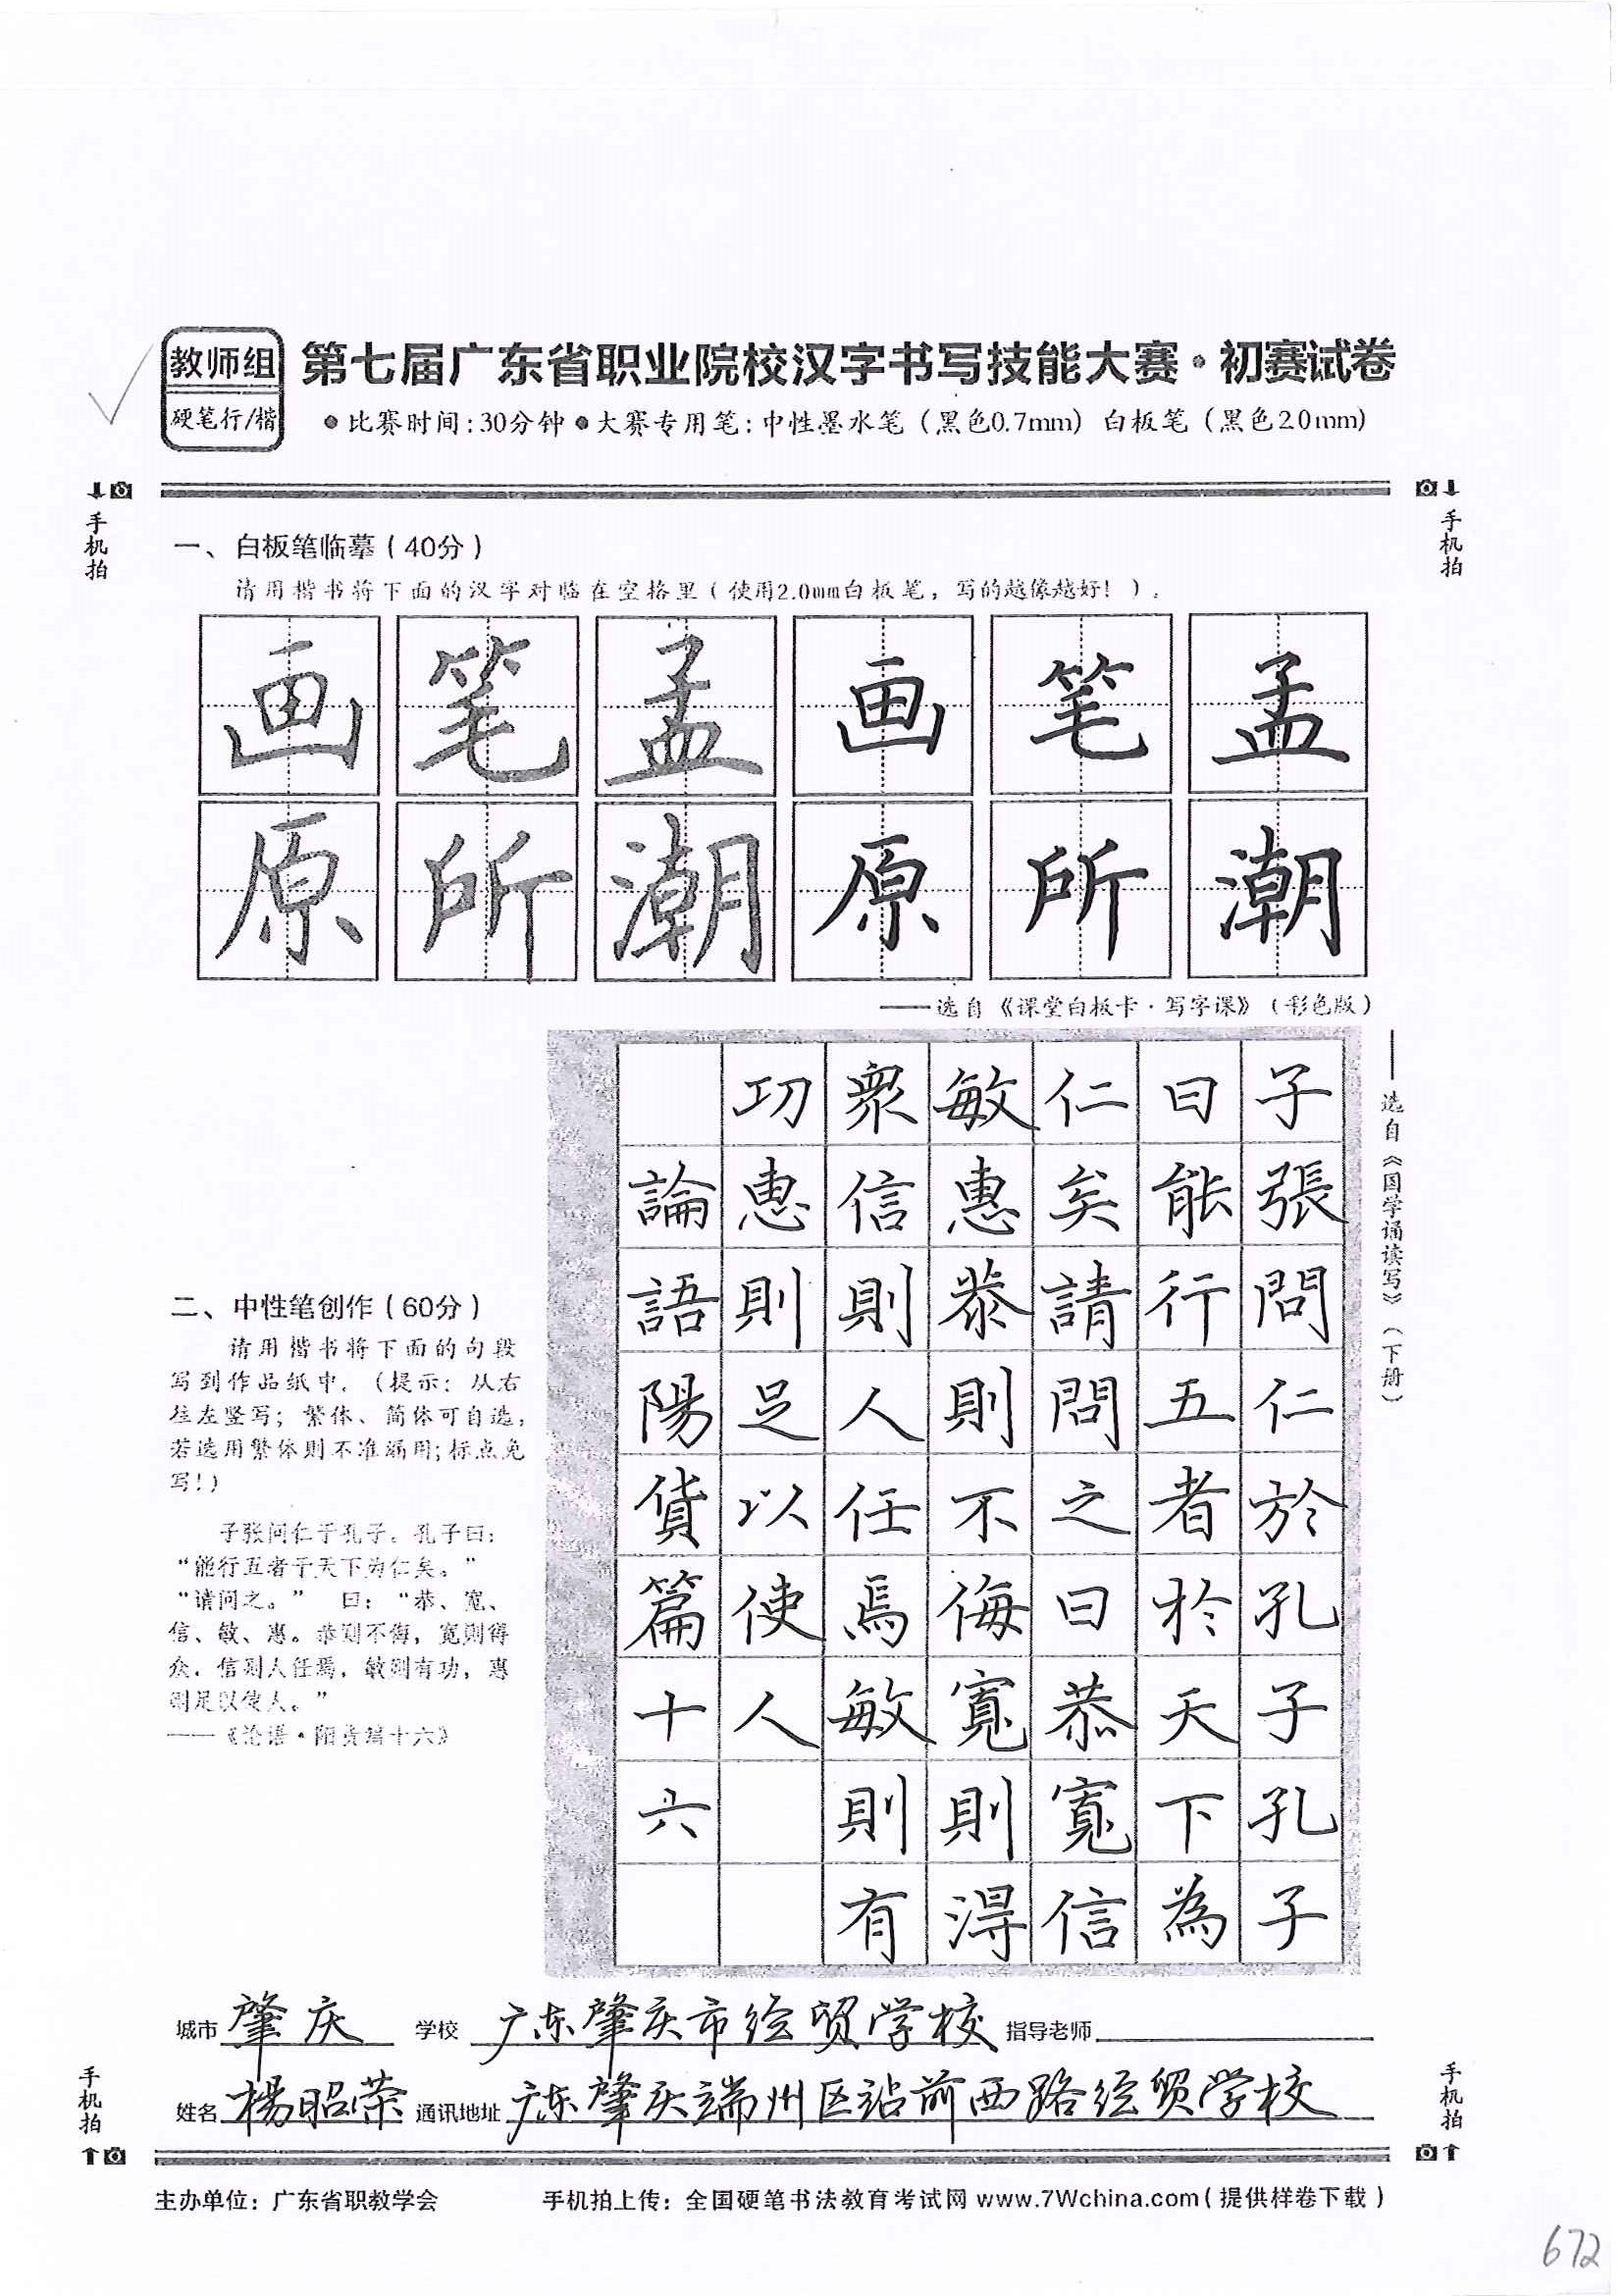 教师组
硬笔行/楷
第七届广东省职业院校汉字书写技能大赛·初赛试卷
●比赛时间:30分钟●大赛专用笔:中性墨水笔(黑色0.7mm) 白板笔(黑色2.0mm)
手机拍
手机拍
一、白板笔临摹(40分)
请用楷书将下面的汉字对临在空格里(使用2.0mm白板笔,写的越像越好!)。
画笔孟画笔孟
原所潮原所潮
——选自《课堂白板卡·写字课》(彩色版)
——选自《国学诵读写》(下册)
子張問仁於孔子孔子
曰能行五者於天下為
仁矣請問之曰恭寬信
敏惠恭則不侮寬則得
衆信則人任焉敏則有
功惠則足以使人
論語陽貨篇十六
二、中性笔创作(60分)
请用楷书将下面的句段
写到作品纸中。(提示:从右
往左竖写;繁体、简体可自选,
若选用繁体则不准漏用;标点免
写!)
子张问仁于孔子。孔子曰:
“能行五者于天下为仁矣。”
“请问之。” 曰:“恭、宽、
信、敏、惠。恭则不侮,宽则得
众,信则人任焉,敏则有功,惠
则足以使人。”
——《论语·阳货篇十六》
城市 肇庆 学校 广东肇庆市经贸学校 指导老师
姓名 楊昭荣 通讯地址 广东肇庆端州区站前西路经贸学校
手机拍
手机拍
主办单位:广东省职教学会 手机拍上传:全国硬笔书法教育考试网 www.7Wchina.com(提供样卷下载)
672